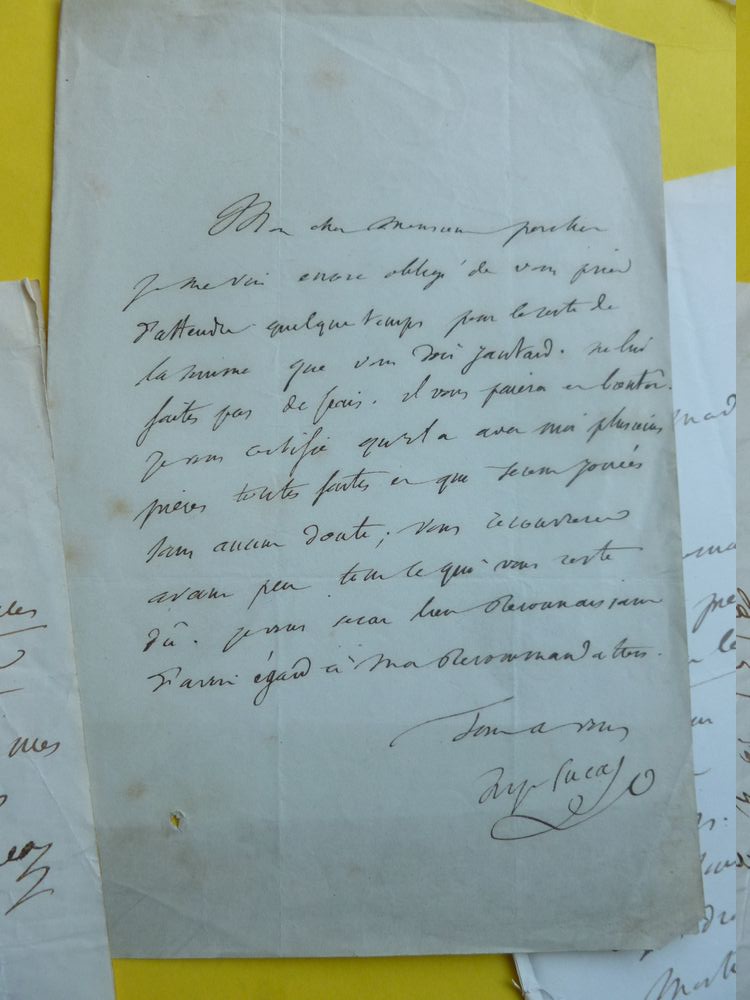 Mon cher Monsieur porcher
je me vois encore obligé de vous prier
d'attendre quelque temps pour le reste de
la somme que vous doit jautard. ne lui
faites pas de frais. il vous paiera bientôt.
je vous certifie qu'il a avec moi plusieurs
pièces toutes faites et que seront jouées
sans aucun doute; vous recouvrerez
avant peu tout ce qui vous reste
dû. je vous serai bien Reconnaissant
d'avoir égard à ma Recommandation.
Tout a vous
hyp Lucas
mes